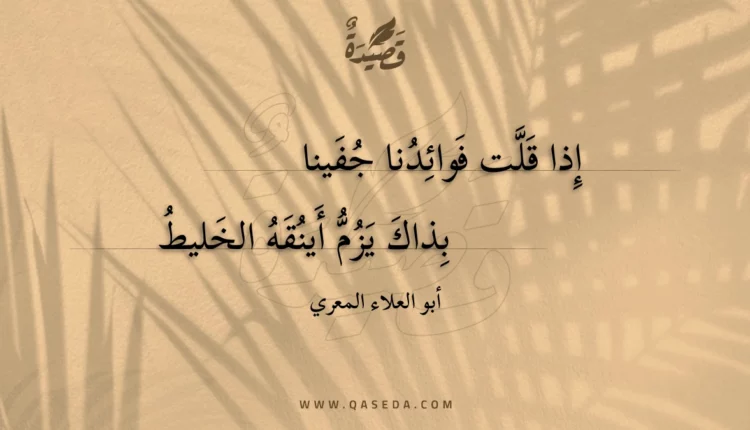 قَصِيْدَةٌ
إِذا قَلَّت فَوائِدُنا جُفَينا
بِذاكَ يَزُمُّ أَينُقَهُ الخَليطُ
أبو العلاء المعري
WWW.QASEDA.COM